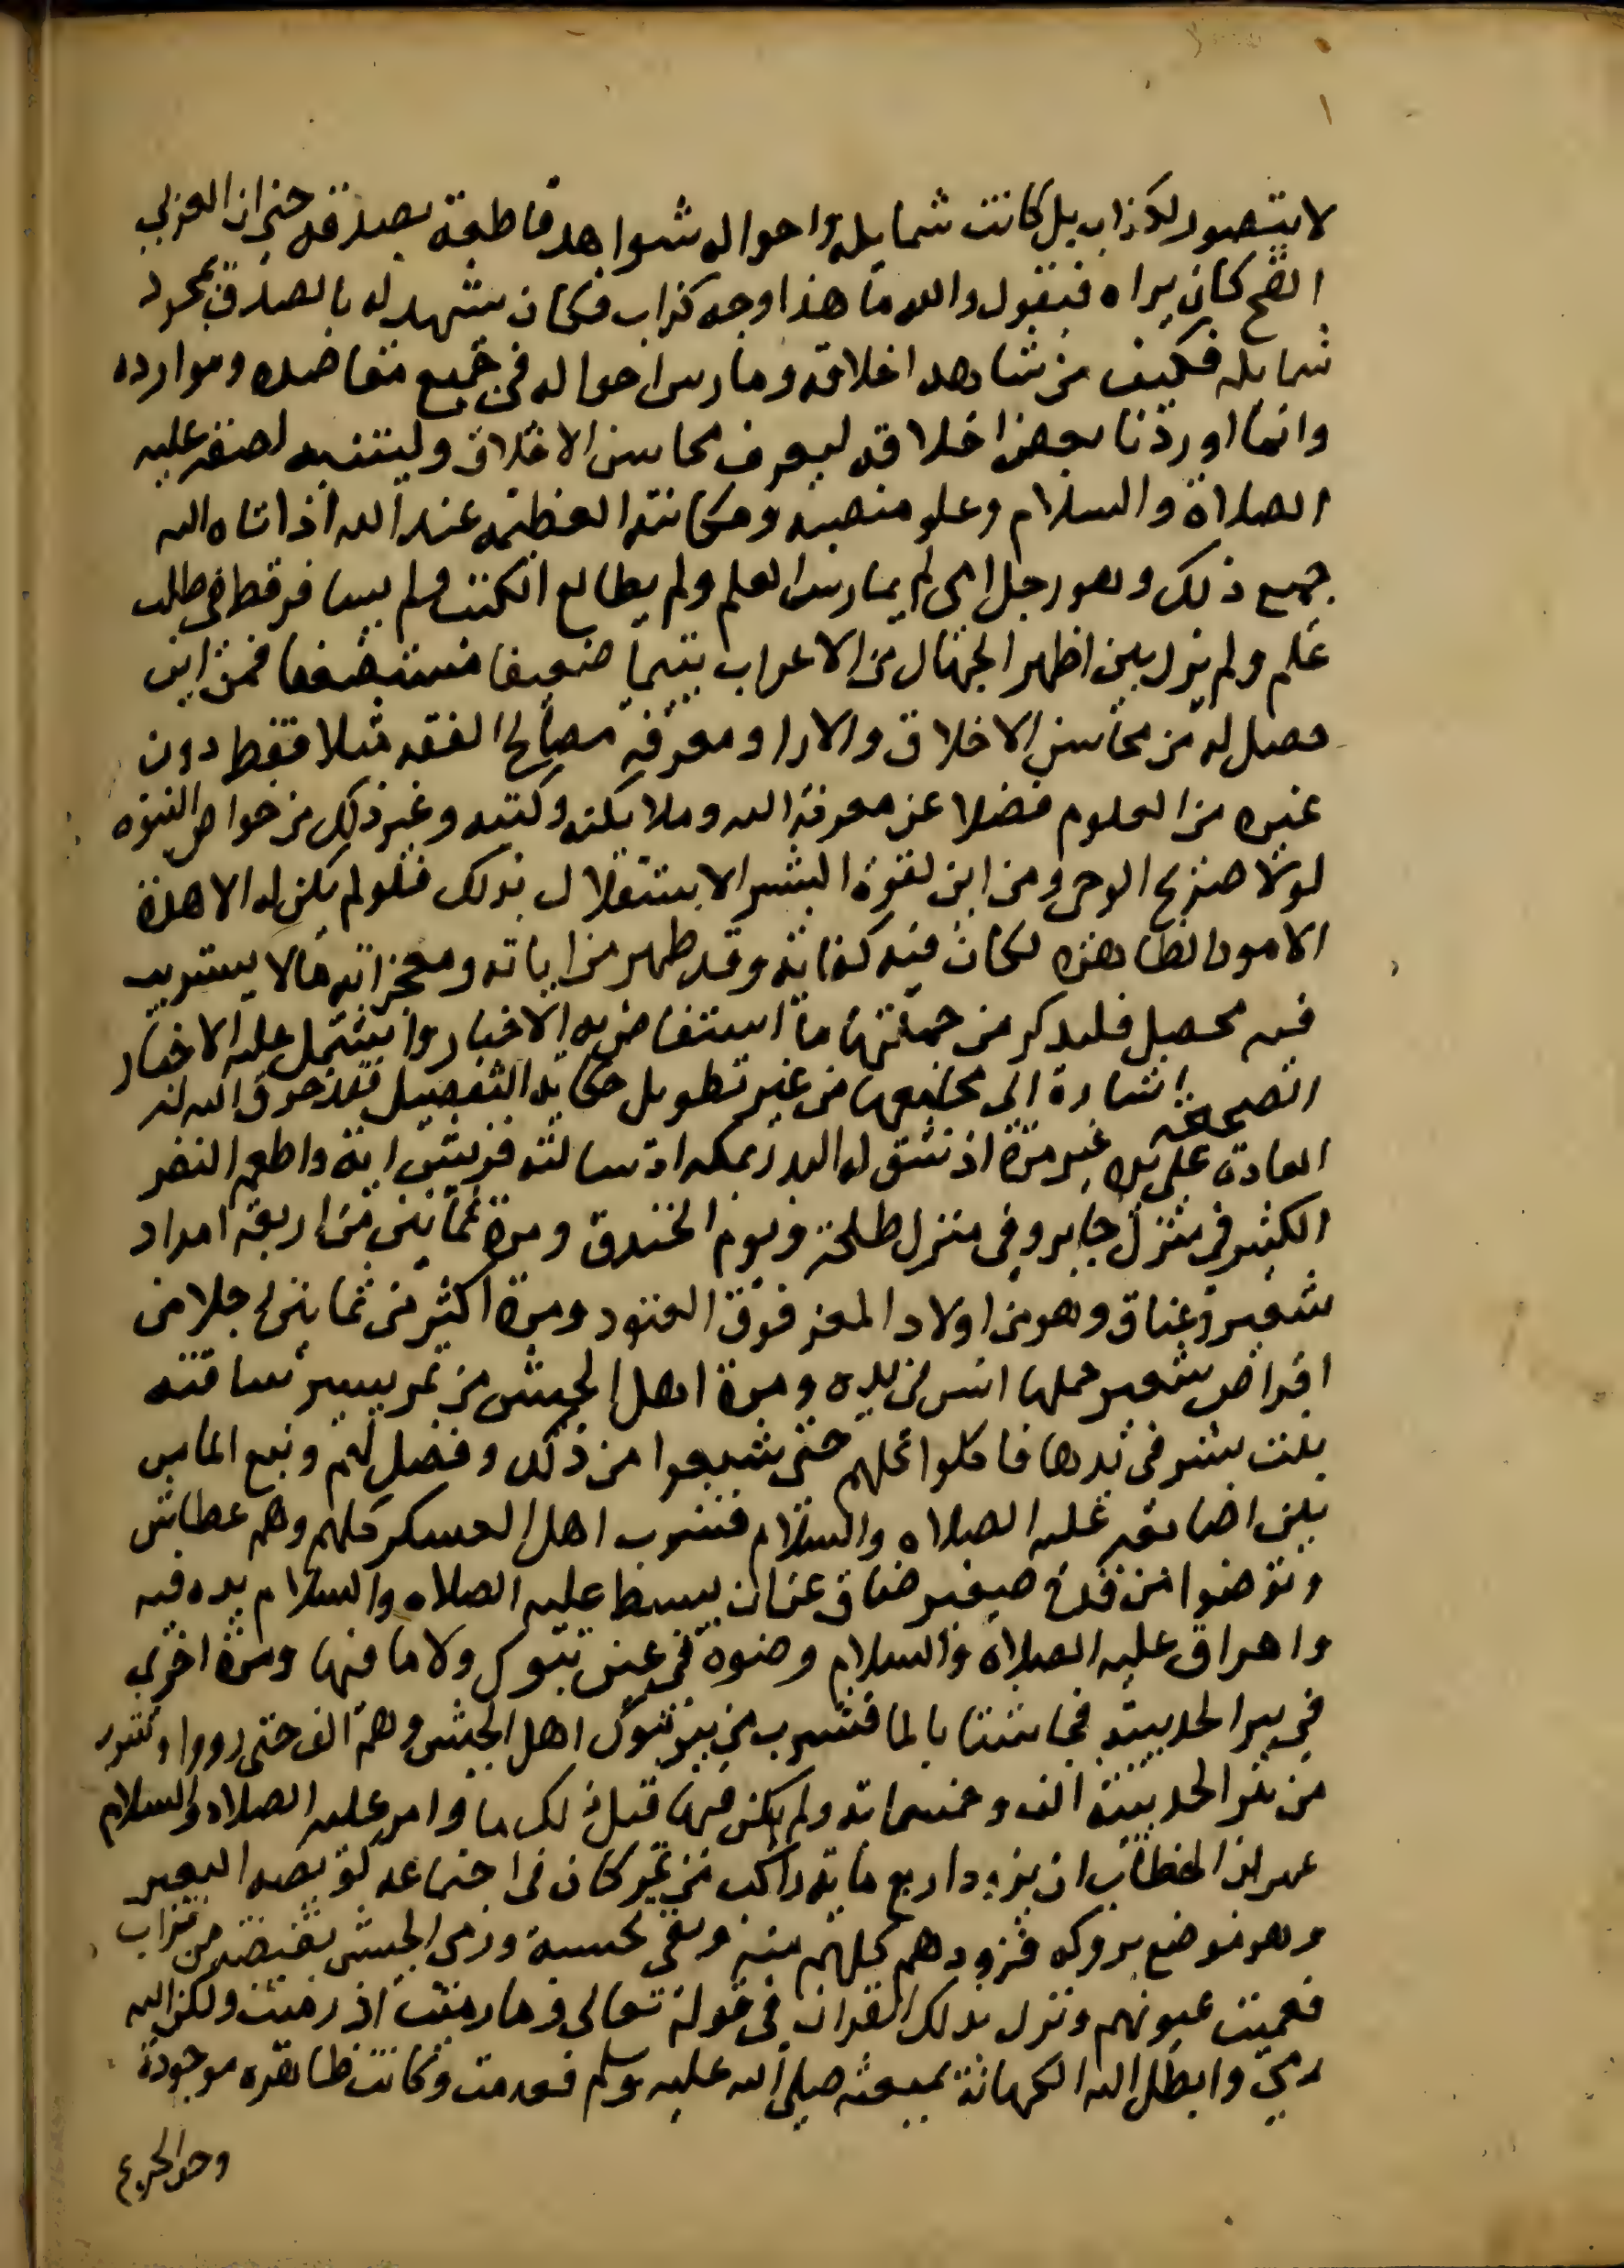 لا يتصور لكذاب بل كانت شمايله واحواله شواهد قاطعة بصدقه حتى ان العربي
القح كان يراه فيقول والله ما هذا وجه كذاب فكان يشهد له بالصدق بمجرد
شمايله فكيف من شاهد اخلاقه ومارس احواله في جميع مصادره وموارده
وانما اوردنا بعض اخلاقه ليعرف محاسن الاخلاق وليتنبه لصدقه عليه
الصلاة والسلام وعلو منصبه ومكانته العظيمة عند الله اذ اتاه الله
جميع ذلك وهو رجل امي لم يمارس العلم ولم يطالع الكتب ولم يسافر قط في طلب
علم ولم يزل بين اظهر الجهال من الاعراب يتيما ضعيفا مستضعفا فمن اين
حصل له من محاسن الاخلاق والاداب ومعرفة مصالح الفقه مثلا فقط دون
غيره من العلوم فضلا عن معرفة الله وملايكته وكتبه وغير ذلك من خواص النبوة
لولا صريح الوحي ومن اين لقوة البشر الاستقلال بذلك فلو لم يكن له الا هذه
الامور الظاهره لكان فيه كفاية وقد ظهر من اياته ومعجزاته مالا يستريب
فيه محصل فليذكر من جملتها ما استفاض به الاخبار واشتمل عليه الاخبار
الصحيحة اشارة الى مجامعها من غير تطويل حكاية التفصيل فقد خرق الله له
العادة على يده غير مرة اذ شق له البدر بمكه اذ سالته قريش اية واطعم النفر
الكثير في منزل جابر وفي منزل طلحة ويوم الخندق ومرة ثمانين من اربعة امداد
شعير وعناق وهو من اولاد المعز فوق العتود ومرة اكثر من ثمانين رجلا من
اقراص شعير حملها انس في يده ومرة اهل الجيش من تمر يسير ساقته
بنت بشر في يدها فاكلوا كلهم حتى شبعوا من ذلك وفضل لهم ونبع الما من
بين اصابعه عليه الصلاه والسلام فشرب اهل العسكر كلهم وهم عطاش
وتوضوا من قدح صغير ضاق عن ان يبسط عليه الصلاه والسلام يده فيه
واهراق عليه الصلاة والسلام وضوه في عين تبوك ولا ما فيها ومرة اخرى
في بير الحديبية فجاشتا بالما فشرب من بير تبوك اهل الجيش وهم الف حتى رووا وشرب
من بير الحديبية الف وخمسماية ولم يكن فيها قبل ذلك ما وامر عليه الصلاه والسلام
عمر بن الخطاب ان يزود اربع ماية راكب من تمر كان في اجتماعه كربضة البعير
وهو موضع بروكه فزودهم كلهم منه وبقي بحسبه ورمى الجيش بقبضه من تراب
فعميت عيونهم ونزل بذلك القران في قوله تعالى وما رميت اذ رميت ولكن الله
رمى وابطل الله الكهانة بمبعثه صلى الله عليه وسلم فعدمت وكانت ظاهره موجودة
وحن الجذع